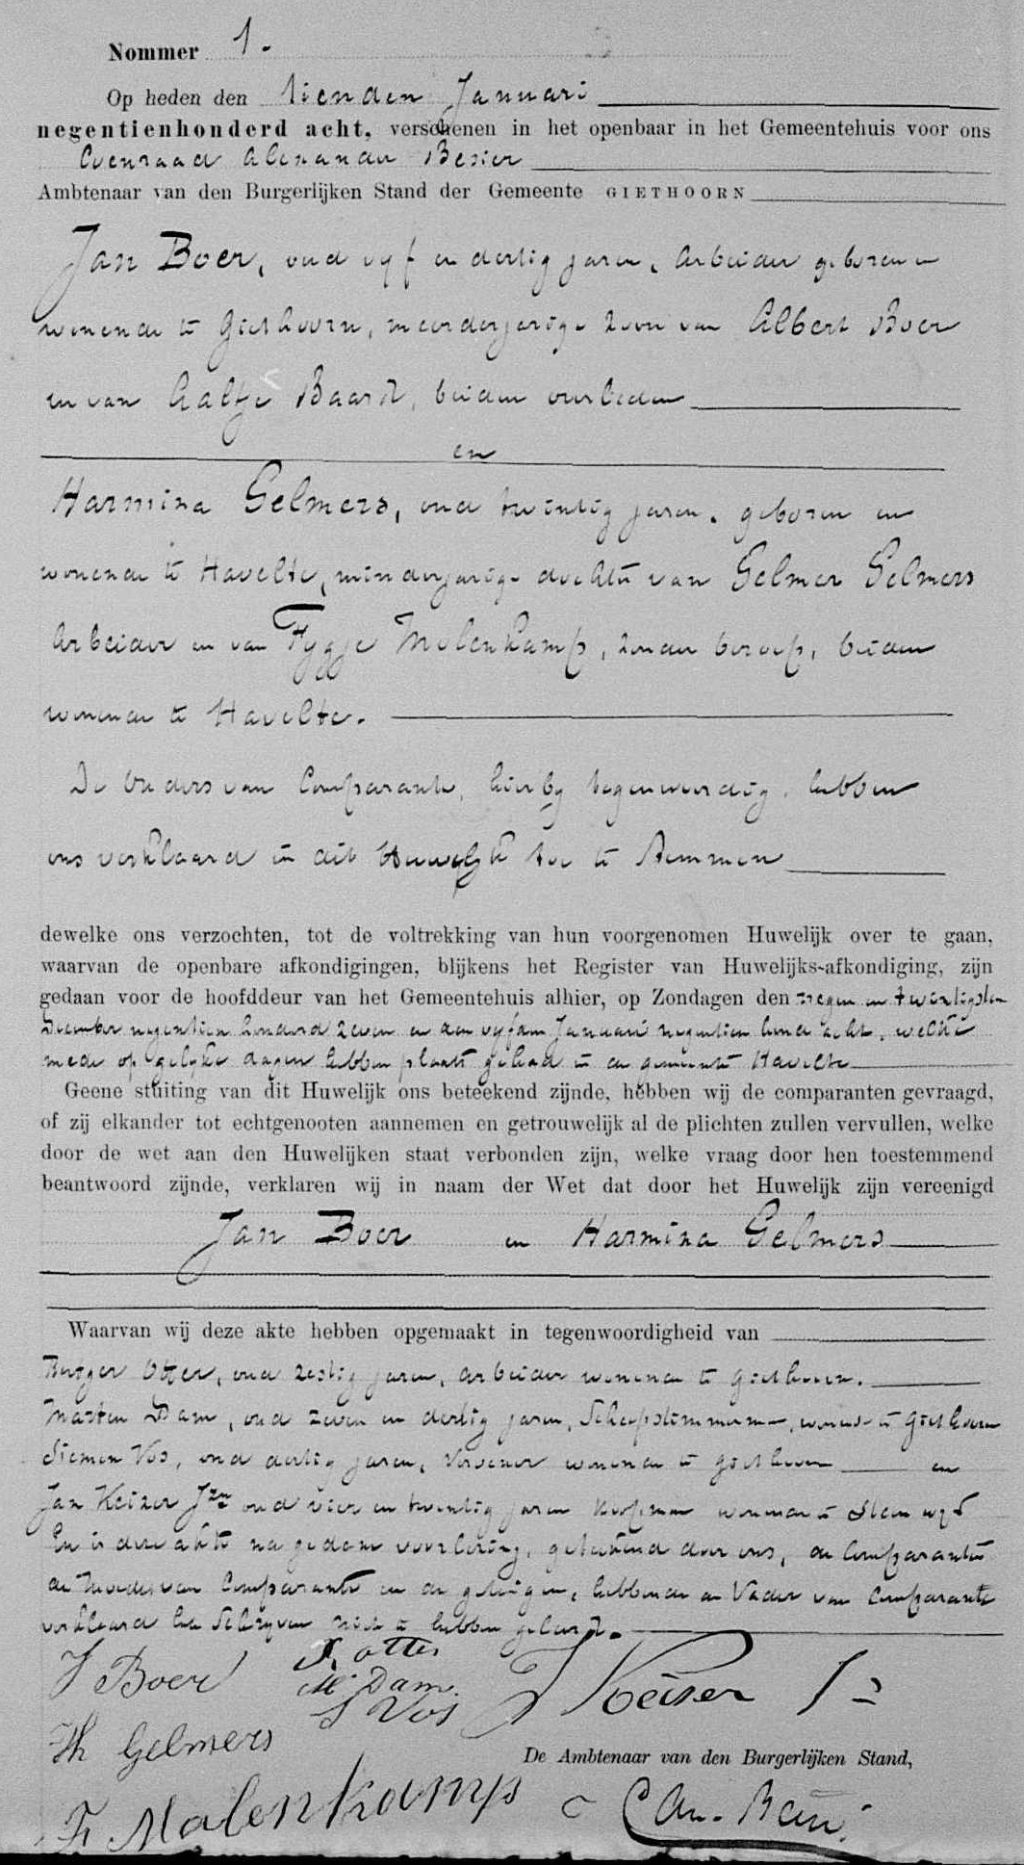 Nommer 1.
Op heden den tienden Januari
negentienhonderd acht, verschenen in het openbaar in het Gemeentehuis voor ons
Coenraad Alexander Besier
Ambtenaar van den Burgerlijken Stand der Gemeente GIETHOORN
Jan Boer, oud vyf en dertig jaren, Arbeider geboren en
wonende te Giethoorn, meerderjarige zoon van Albert Boer
en van Aaltje Baard, beiden overleden
en
Harmina Gelmers, oud twintig jaren, geboren en
wonende te Havelte, minderjarige dochter van Gelmer Gelmers
Arbeider en van Fygje Molenkamp, zonder beroep, beiden
wonende te Havelte.
De Ouders van Comparante, hierby tegenwoordig, hebben
ons verklaard in dit Huwelyk toe te stemmen
dewelke ons verzochten, tot de voltrekking van hun voorgenomen Huwelijk over te gaan,
waarvan de openbare afkondigingen, blijkens het Register van Huwelijks-afkondiging, zijn
gedaan voor de hoofddeur van het Gemeentehuis alhier, op Zondagen den negen en twintigsten
December negentien honderd zeven en den vyfden Januari negentien hond acht, welke
mede op gelyke dagen hebben plaats gehad in de gemeente Havelte
Geene stuiting van dit Huwelijk ons beteekend zijnde, hebben wij de comparanten gevraagd,
of zij elkander tot echtgenooten aannemen en getrouwelijk al de plichten zullen vervullen, welke
door de wet aan den Huwelijken staat verbonden zijn, welke vraag door hen toestemmend
beantwoord zijnde, verklaren wij in naam der Wet dat door het Huwelijk zijn vereenigd
Jan Boer en Harmina Gelmers
Waarvan wij deze akte hebben opgemaakt in tegenwoordigheid van
Rutger Otter, oud zestig jaren, Arbeider wonende te Giethoorn.
Marten Dam, oud zeven en dertig jaren, Scheepstimmerman, wonende te Giethoorn
Siemen Vos, oud dertig jaren, Vervener wonende te Giethoorn en
Jan Keizer Jzn oud vier en twintig jaren koopman wonende te Steenwyk
En is deze akte na gedane voorlezing, geteekend door ons, de Comparanten
de Moeder van Comparante en de getuigen, hebbende de Vader van Comparante
verklaard het Schryven niet te hebben geleerd.
J Boer R. otter
M Dam
S Vos J Keiser Jz
H Gelmers
De Ambtenaar van den Burgerlijken Stand,
F Molenkamp